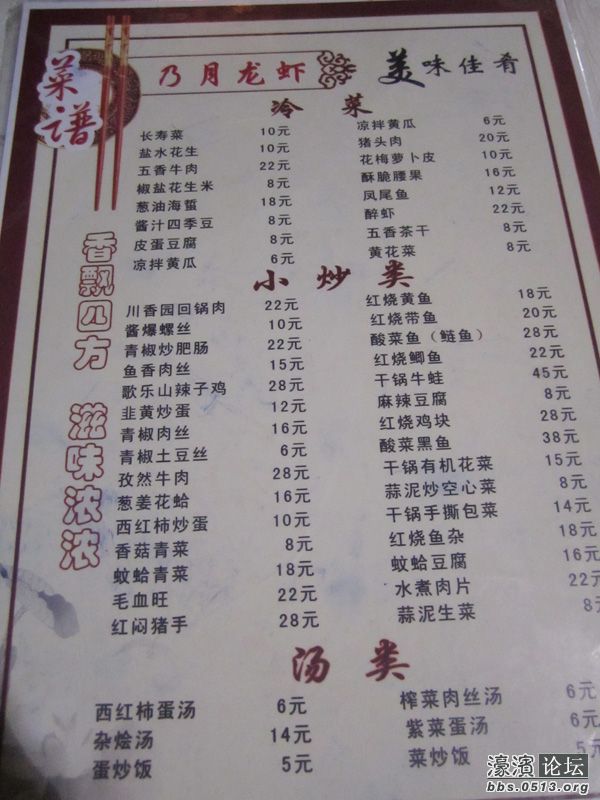 菜谱
乃月龙虾
美味佳肴
香飘四方 滋味浓浓
冷菜
长寿菜 10元
盐水花生 10元
五香牛肉 22元
椒盐花生米 8元
葱油海蜇 18元
酱汁四季豆 8元
皮蛋豆腐 8元
凉拌黄瓜 6元
凉拌黄瓜 6元
猪头肉 20元
花梅萝卜皮 10元
酥脆腰果 16元
凤尾鱼 12元
醉虾 22元
五香茶干 8元
黄花菜 8元
小炒类
川香园回锅肉 22元
酱爆螺丝 10元
青椒炒肥肠 22元
鱼香肉丝 15元
歌乐山辣子鸡 28元
韭黄炒蛋 12元
青椒肉丝 16元
青椒土豆丝 6元
孜然牛肉 28元
葱姜花蛤 16元
西红柿炒蛋 10元
香菇青菜 8元
蚊蛤青菜 18元
毛血旺 22元
红闷猪手 28元
红烧黄鱼 18元
红烧带鱼 20元
酸菜鱼（鲢鱼） 28元
红烧鲫鱼 22元
干锅牛蛙 45元
麻辣豆腐 8元
红烧鸡块 28元
酸菜黑鱼 38元
干锅有机花菜 15元
蒜泥炒空心菜 8元
干锅手撕包菜 14元
红烧鱼杂 18元
蚊蛤豆腐 16元
水煮肉片 22元
蒜泥生菜 8元
汤类
西红柿蛋汤 6元
杂烩汤 14元
蛋炒饭 5元
榨菜肉丝汤 6元
紫菜蛋汤 6元
菜炒饭 5元
濠滨论坛
bbs.0513.org